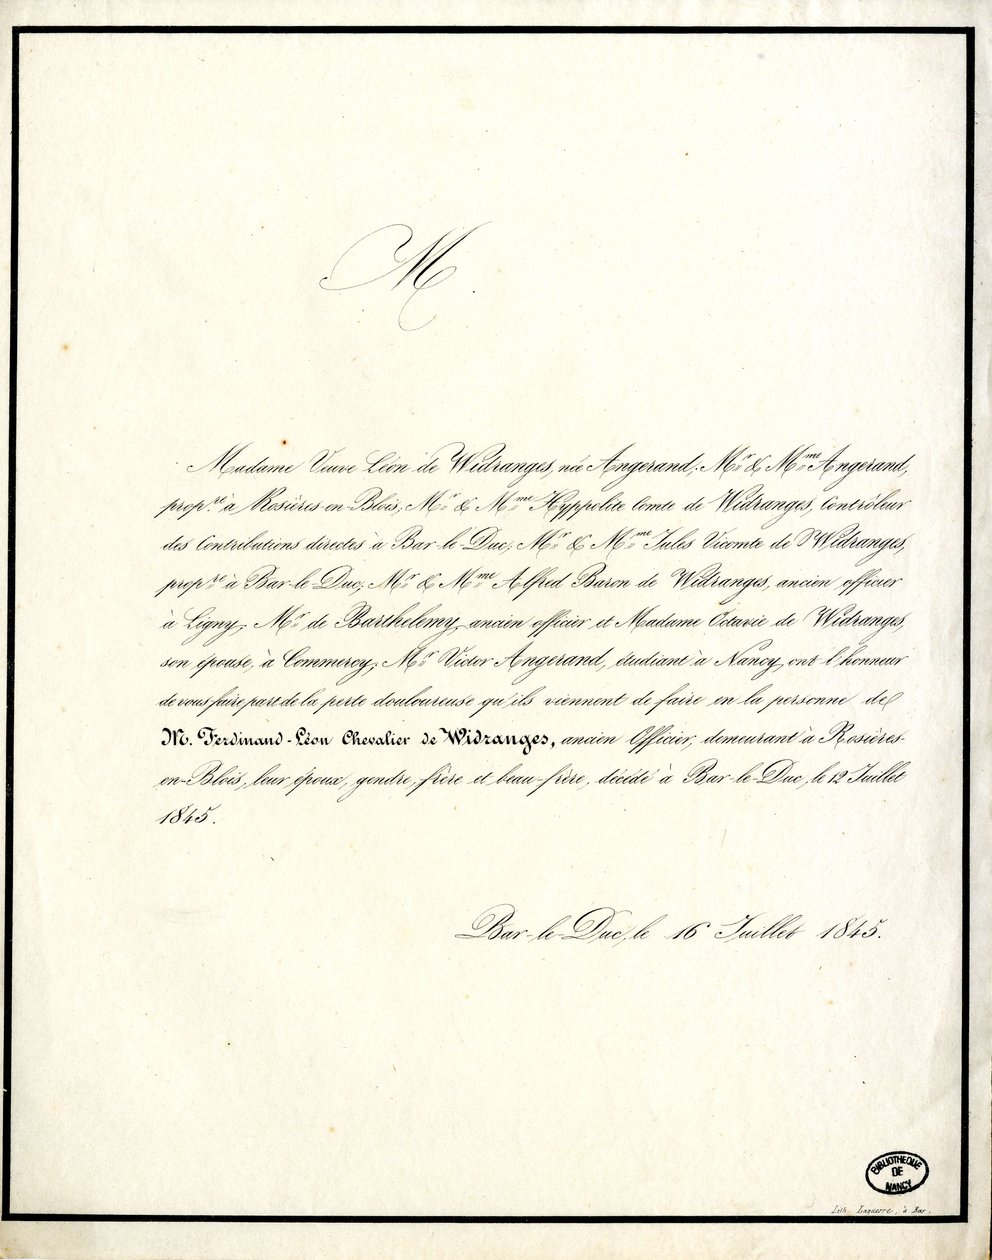 M.
Madame Veuve Léon de Widranges, née Angerand; Mr. & Mme. Angerand,
propre. à Rosières-en-Blois; Mr. & Mme. Hyppolite Comte de Widranges, Contrôleur
des Contributions directes à Bar-le-Duc; Mr. & Mme. Jules Vicomte de Widranges,
propre. à Bar-le-Duc; Mr. & Mme. Alfred Baron de Widranges, ancien officier
à Ligny; Mr. de Barthelemy, ancien officier et Madame Octavie de Widranges,
son épouse, à Commercy; Mr. Victor Angerand, étudiant à Nancy, ont l'honneur
de vous faire part de la perte douloureuse qu'ils viennent de faire en la personne de
M. Ferdinand-Léon Chevalier de Widranges, ancien Officier, demeurant à Rosières-
en-Blois, leur époux, gendre, frère et beau-frère, décédé à Bar-le-Duc, le 12 Juillet
1845.
Bar-le-Duc, le 16 Juillet 1845.
BIBLIOTHEQUE
DE
NANCY
Lith. Laguerre, à Bar.